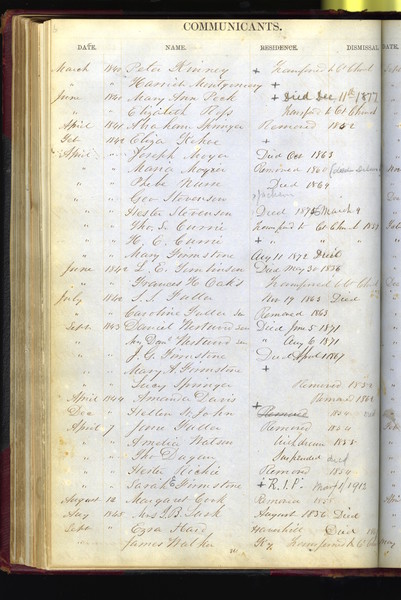 COMMUNICANTS.
DATE. NAME. RESIDENCE. DISMISSAL DATE.
March 1840 Peter Kinney + Transferred to Ct Church
" " Harriet Montgomery +
June 1840 Mary Ann Peck + Died Dec 11th 1877
" " Elizabeth Ross Transferred to Ct Church
April 1841 Abraham Springer Removed 1852
Oct 1842 Eliza Kehoe +
April " Joseph Moyer Died Oct 1863
" " Maria Moyer Removed 1860
" " Phebe Nurse Died 1869
" " Geo Stevenson
" " Hester Stevenson Died March 9
" " Tho. S. Currie Transferred to Ct Church
" " H. C. Currie + " " "
" " Mary Grimstone Aug 11 1872 Died
June 1842 L. E. Tomlinson Died May 30 1876
" " Frances H. Oaks Transferred to Church
July 1840 S. S. Fuller Nov 19 1863 Died
" " Caroline Fuller Removed 1863
Sept. 1843 Daniel Westwood Sen Died Jan 5 1871
" " Westwood Sen " Aug 6 1871
" " J. G. Grimstone Died April 1867
" " Mary A Grimstone +
" " Springer Removed 1852
April 1844 Amanda Davis + Removed
Dec " Hellen St John + Removed
April 7 Jane Fuller Removed 1854
" " Amelia Watson Withdrawn 1855
" " Tho Dugan Suspended died
" " Hester Removed 1854
" " Sarah E Grimstone + R.I.P. Nov 1 1912
August 12 Margaret Cook Removed 1855
Aug 1845 Mrs J. B. Tusk August 1856 Died
Sept " Ezra Hard Died
" " James Walker Ky Transferred to Ct